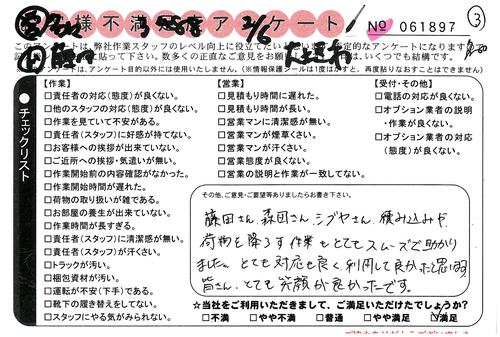 様不満 アンケート
2/6
№ 061897
③
このアンケートは、弊社作業スタッフのレベル向上に役立てたい
数多くの正直なご意見をお
は、いくつでも結構です。
アンケート目的以外には使用いたしません。(※情報保護シールは1度はがすと、再度貼りなおすことはできません)
チェックリスト
【作業】
□責任者の対応(態度)が良くない。
□他のスタッフの対応(態度)が良くない。
□作業を見ていて不安がある。
□責任者(スタッフ)に好感が持てない。
□お客様への挨拶が出来ていない。
□ご近所への挨拶・気遣いが無い。
□作業開始前の内容確認がなかった。
□作業開始時間が遅れた。
□荷物の取り扱いが雑である。
□お部屋の養生が出来ていない。
□作業時間が長すぎる。
□責任者(スタッフ)に清潔感が無い。
□責任者(スタッフ)が汗くさい。
□トラックが汚い。
□梱包資材が汚い。
□運転が不安(下手)である。
□靴下の履き替えをしてない。
□スタッフにやる気がみられない。
【営業】
□見積もり時間に遅れた。
□見積もり時間が長い。
□営業マンに清潔感が無い。
□営業マンが煙草くさい。
□営業マンが汗くさい。
□営業態度が良くない。
□営業の説明と作業が一致してない。
【受付・その他】
□電話の対応が良くない。
□オプション業者の説明・作業が良くない。
□オプション業者の対応(態度)が良くない。
その他、ご意見・ご要望等ありましたらお書き下さい。
藤田さん、森田さん、シブヤさん、積み込みや
荷物を降ろす作業もとてもスムーズで助かり
ました。とても対応も良く、利用して良かったと思います
皆さん、とても笑顔が良かったです。
☆当社をご利用いただきまして、ご満足いただけたでしょうか?
□不満 □やや不満 □普通 □やや満足 □満足